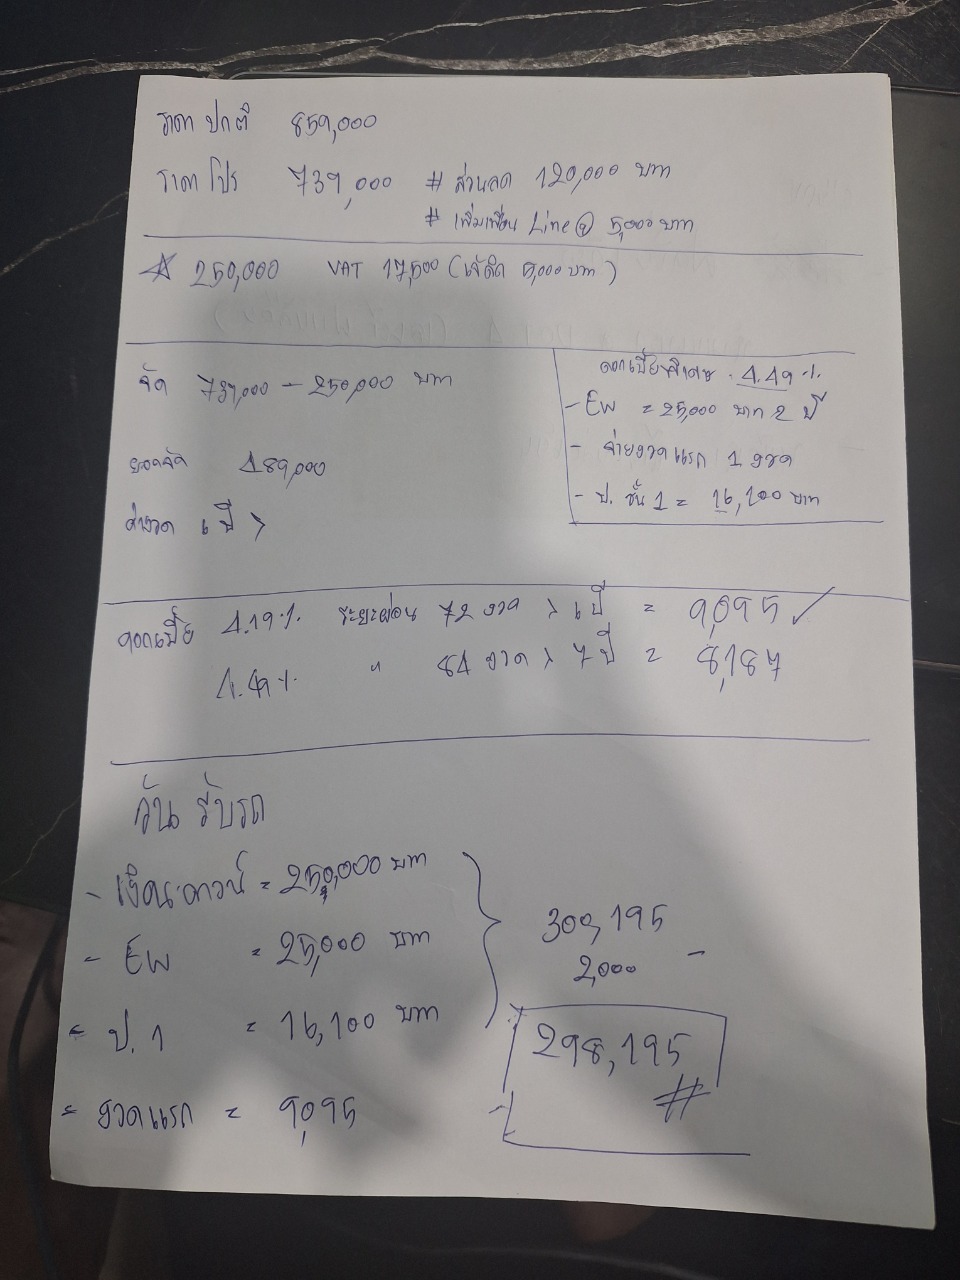 ราคา ปกติ 859,000
ราคา โปร 739,000 # ส่วนลด 120,000 บาท
# เพิ่มเพื่อน Line@ 5,000 บาท
☆ 250,000 VAT 17,500 ( 5,000 บาท )
จัด 739,000 - 250,000 บาท
ยอดจัด 489,000
ค่างวด 6 ปี >
ดอกเบี้ยพิเศษ . 4.49 %
- EW = 25,000 บาท 2 ปี
- จ่ายงวดแรก 1 งวด
- ป. ชั้น 1 = 16,100 บาท
ดอกเบี้ย 4.19 % ระยะผ่อน 72 งวด > 6 ปี = 9,095 ✓
4.49 % " 84 งวด > 7 ปี = 8,187
วัน รับรถ
- เงินดาวน์ = 250,000 บาท
- EW = 25,000 บาท
- ป. 1 = 16,100 บาท
- งวดแรก = 9,095
300,195
2,000 -
298,195
#